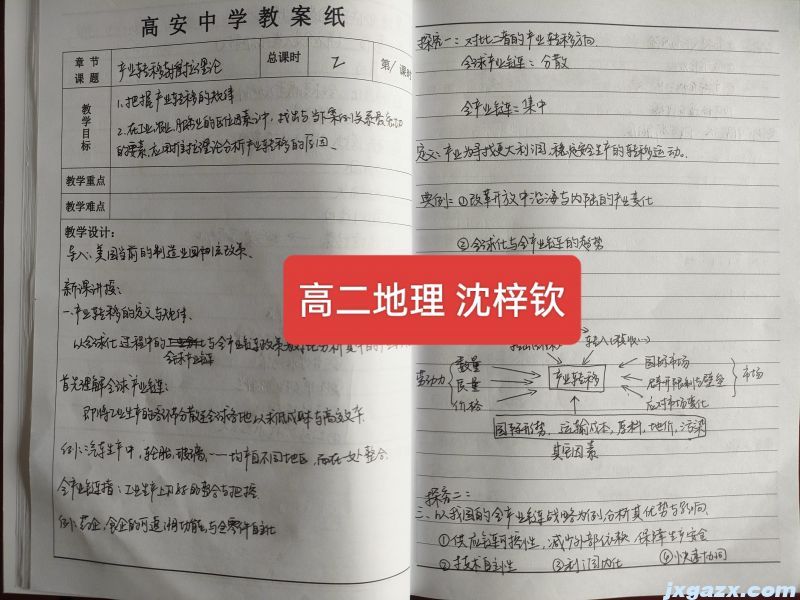 高安中学教案纸
章节课题 产业转移与推拉理论 总课时 2 第1课时
教学目标
1.把握产业转移的规律
2.在工业、农业、服务业的区位因素中,找出与当下案例关系最密切
的要素,应用推拉理论分析产业转移的原因。
教学重点
教学难点
教学设计:
导入:美国当前的制造业回流政策。
新课讲授:
一.产业转移的定义与规律.
以全球化过程中的全球产业链与全产业链政策
首先理解全球产业链:
即将工业生产的各环节分散至全球各地以利低成本与高效率.
例:汽车生产中,轮胎,玻璃,……均产自不同地区,而在一处整合.
全产业链指:工业生产上下游的整合与把控.
例:药企,食企的可追溯功能与全零件自化
探究一:对比二者的产业转移方向.
全球产业链:分散
全产业链:集中
定义:产业为寻找更大利润、稳定安全生产的转移运动。
典例:①改革开放中沿海与内陆的产业变化
②全球化与全产业链的趋势
高二地理 沈梓钦
劳动力 数量 质量 价格
产业转移
国际市场
避开限制与壁垒
应对市场变化
市场
国际形势、运输成本、原料、地价、污染
其它因素
探究二:
二、以我国的全产业链战略为例分析其优势与影响.
①供应链可控性,减少外部依赖,保障生产安全
②技术自主性 ③利润内化 ④快速协同
jxgazx.com